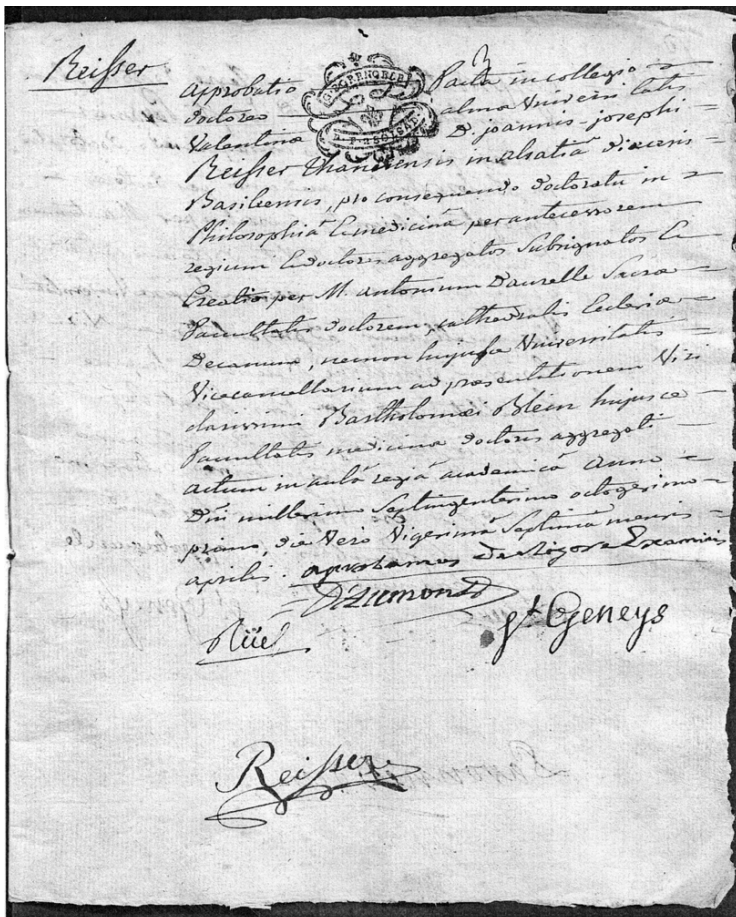 Reisser
approbatio facta in collegio
doctoreo almæ Universitatis
Valentinæ D. joannis-josephi
Reisser thannensis in alsatiâ diœcesis
Basileensis, pro consequendo doctoratu in
Philosophiâ & medicinâ per antecessorem
regium & doctores aggregatos subsignatos &
Creatio per M. antonium Daurelle Sacræ
facultatis doctorem, cathedralis Ecclesiæ
Decanum, necnon hujusce Universitatis
Vicecancellarium ad præsentationem Viri
clarissimi Bartholomæi Blein hujusce
facultatis medicinæ doctoris aggregati
actum in aulâ regiâ academicâ anno
Dñi millesimo Septingentesimo octogesimo
primo, die Vero Vigesimâ Septimâ mensis
aprilis. aprobamus De Rigore Examinis
Dezumond
Rüel
gt Geneys
Reisser